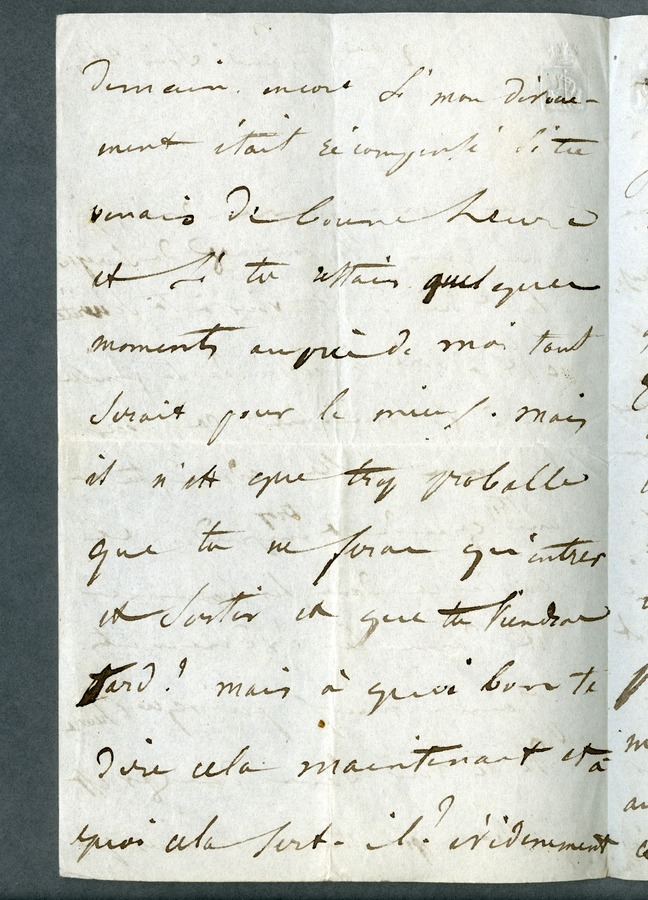 demain. encore si mon dévoue-
ment était récompensé si tu
venais de bonne heure
et si tu restais quelques
moments auprès de moi tout
serait pour le mieux. mais
il n'est que trop probable
que tu ne feras qu'entrer
et sortir et que tu viendras
tard! mais à quoi bon te
dire cela maintenant et à
quoi cela sert-il? évidemment